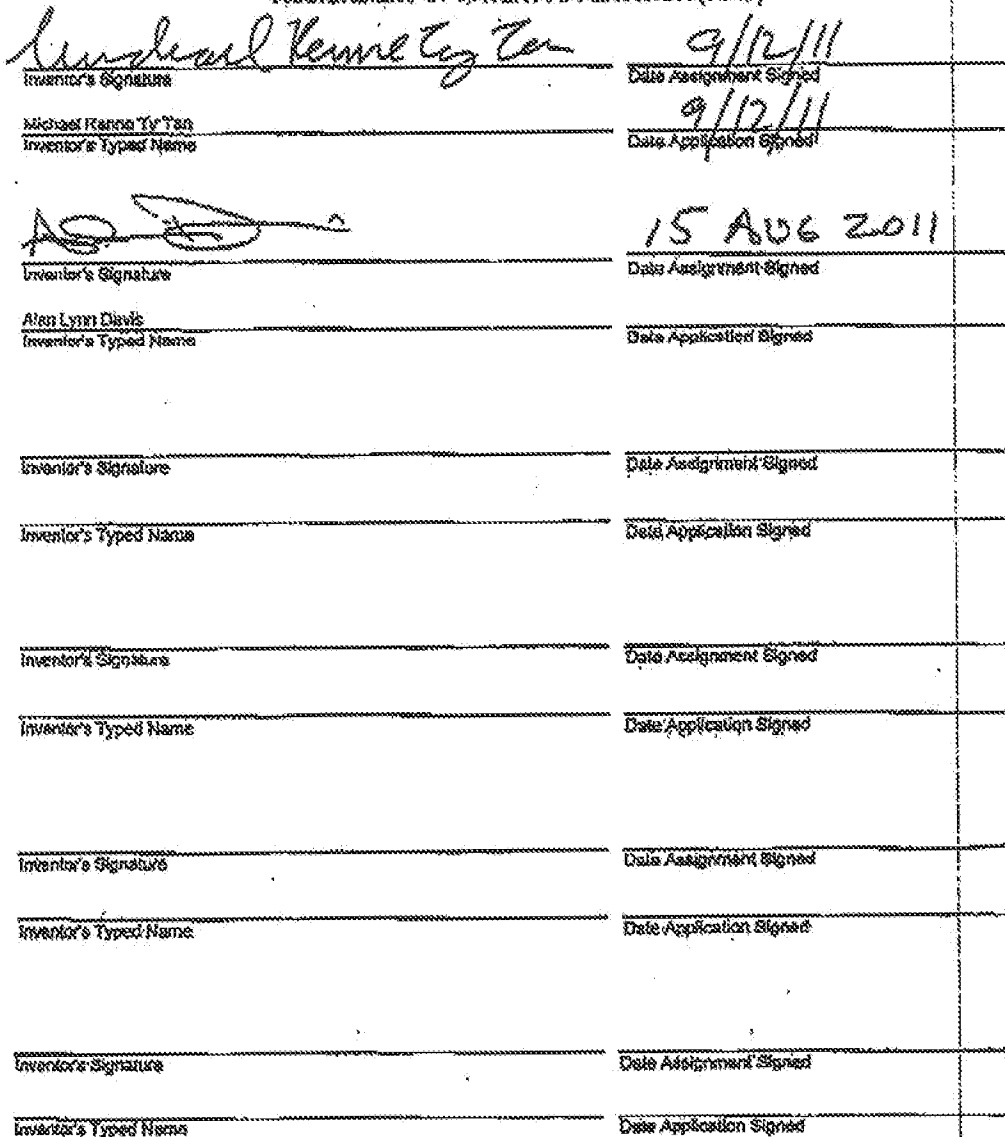 Michael Renne Ty Tan 9/12/11
Inventor's Signature Date Assignment Signed
Michael Renne Ty Tan 9/12/11
Inventor's Typed Name Date Application Signed
15 AUG 2011
Inventor's Signature Date Assignment Signed
Alan Lynn Davis
Inventor's Typed Name Date Application Signed
Inventor's Signature Date Assignment Signed
Inventor's Typed Name Date Application Signed
Inventor's Signature Date Assignment Signed
Inventor's Typed Name Date Application Signed
Inventor's Signature Date Assignment Signed
Inventor's Typed Name Date Application Signed
Inventor's Signature Date Assignment Signed
Inventor's Typed Name Date Application Signed